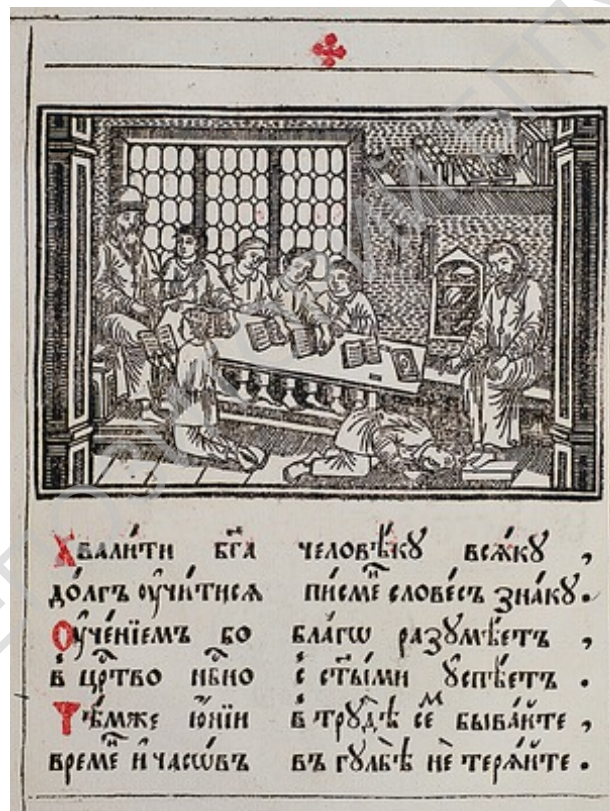 Хвали́ти бг҃а человѣ́кꙋ всѧ́кꙋ ,
до́лгъ ᲂу҆чи́тисѧ писме́ⷩ слове́съ зна́кꙋ .
Оу҆че́нїемъ бо благѡ разꙋмѣ́етъ ,
в цр҇тво нб҇но с ст҃ы́ми ᲂу҆спѣ́етъ .
Тѣ́мже ю҆́нїи в трꙋдѣ̀ сеⷨ быва́йте ,
време́ⷩ и҆ часѡ́въ въ гꙋлбѣ̀ не терѧ́йте .